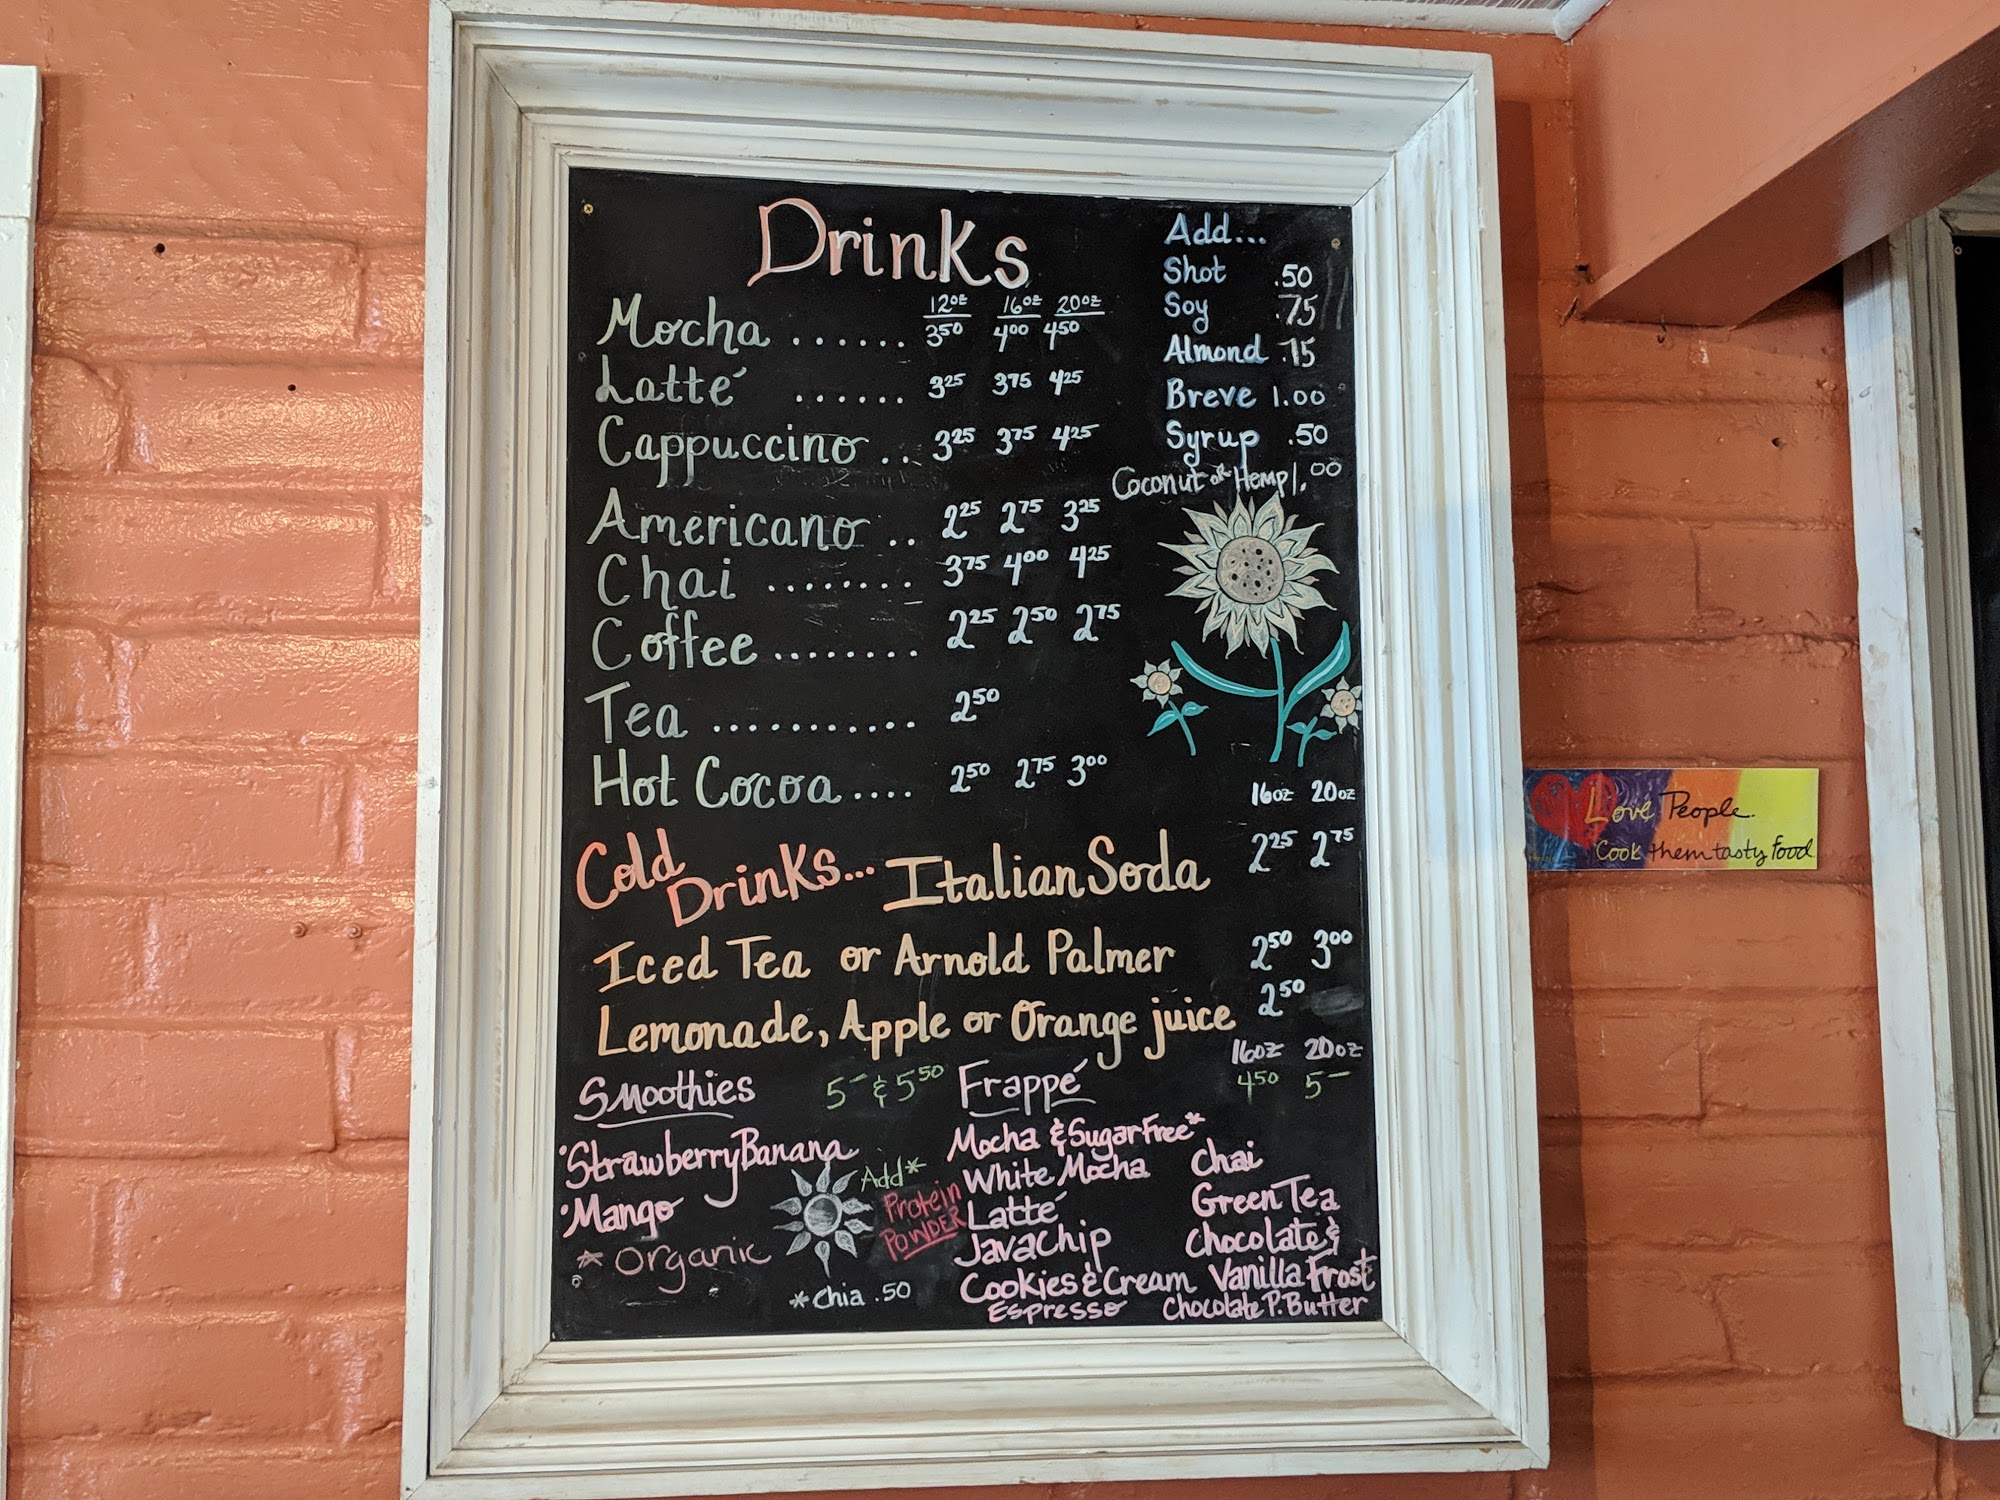 Drinks
12oz 16oz 20oz
Mocha ...... 350 400 450
Latté ...... 325 375 425
Cappuccino .. 325 375 425
Americano .. 225 275 325
Chai ........ 375 400 425
Coffee ........ 225 250 275
Tea ........... 250
Hot Cocoa .... 250 275 300
Add...
Shot .50
Soy .75
Almond .75
Breve 1.00
Syrup .50
Coconut or Hemp 1.00
16oz 20oz
Cold Drinks... Italian Soda 225 275
Iced Tea or Arnold Palmer 250 300
Lemonade, Apple or Orange juice 250
Smoothies 5– & 550
•Strawberry Banana
•Mango
* Organic
Add*
Protein
Powder
*Chia .50
16oz 20oz
Frappé 450 5–
Mocha & Sugar Free*
White Mocha
Latté
Javachip
Cookies & Cream
Espresso
Chai
Green Tea
Chocolate &
Vanilla Frost
Chocolate P. Butter
Love People.
Cook them tasty food